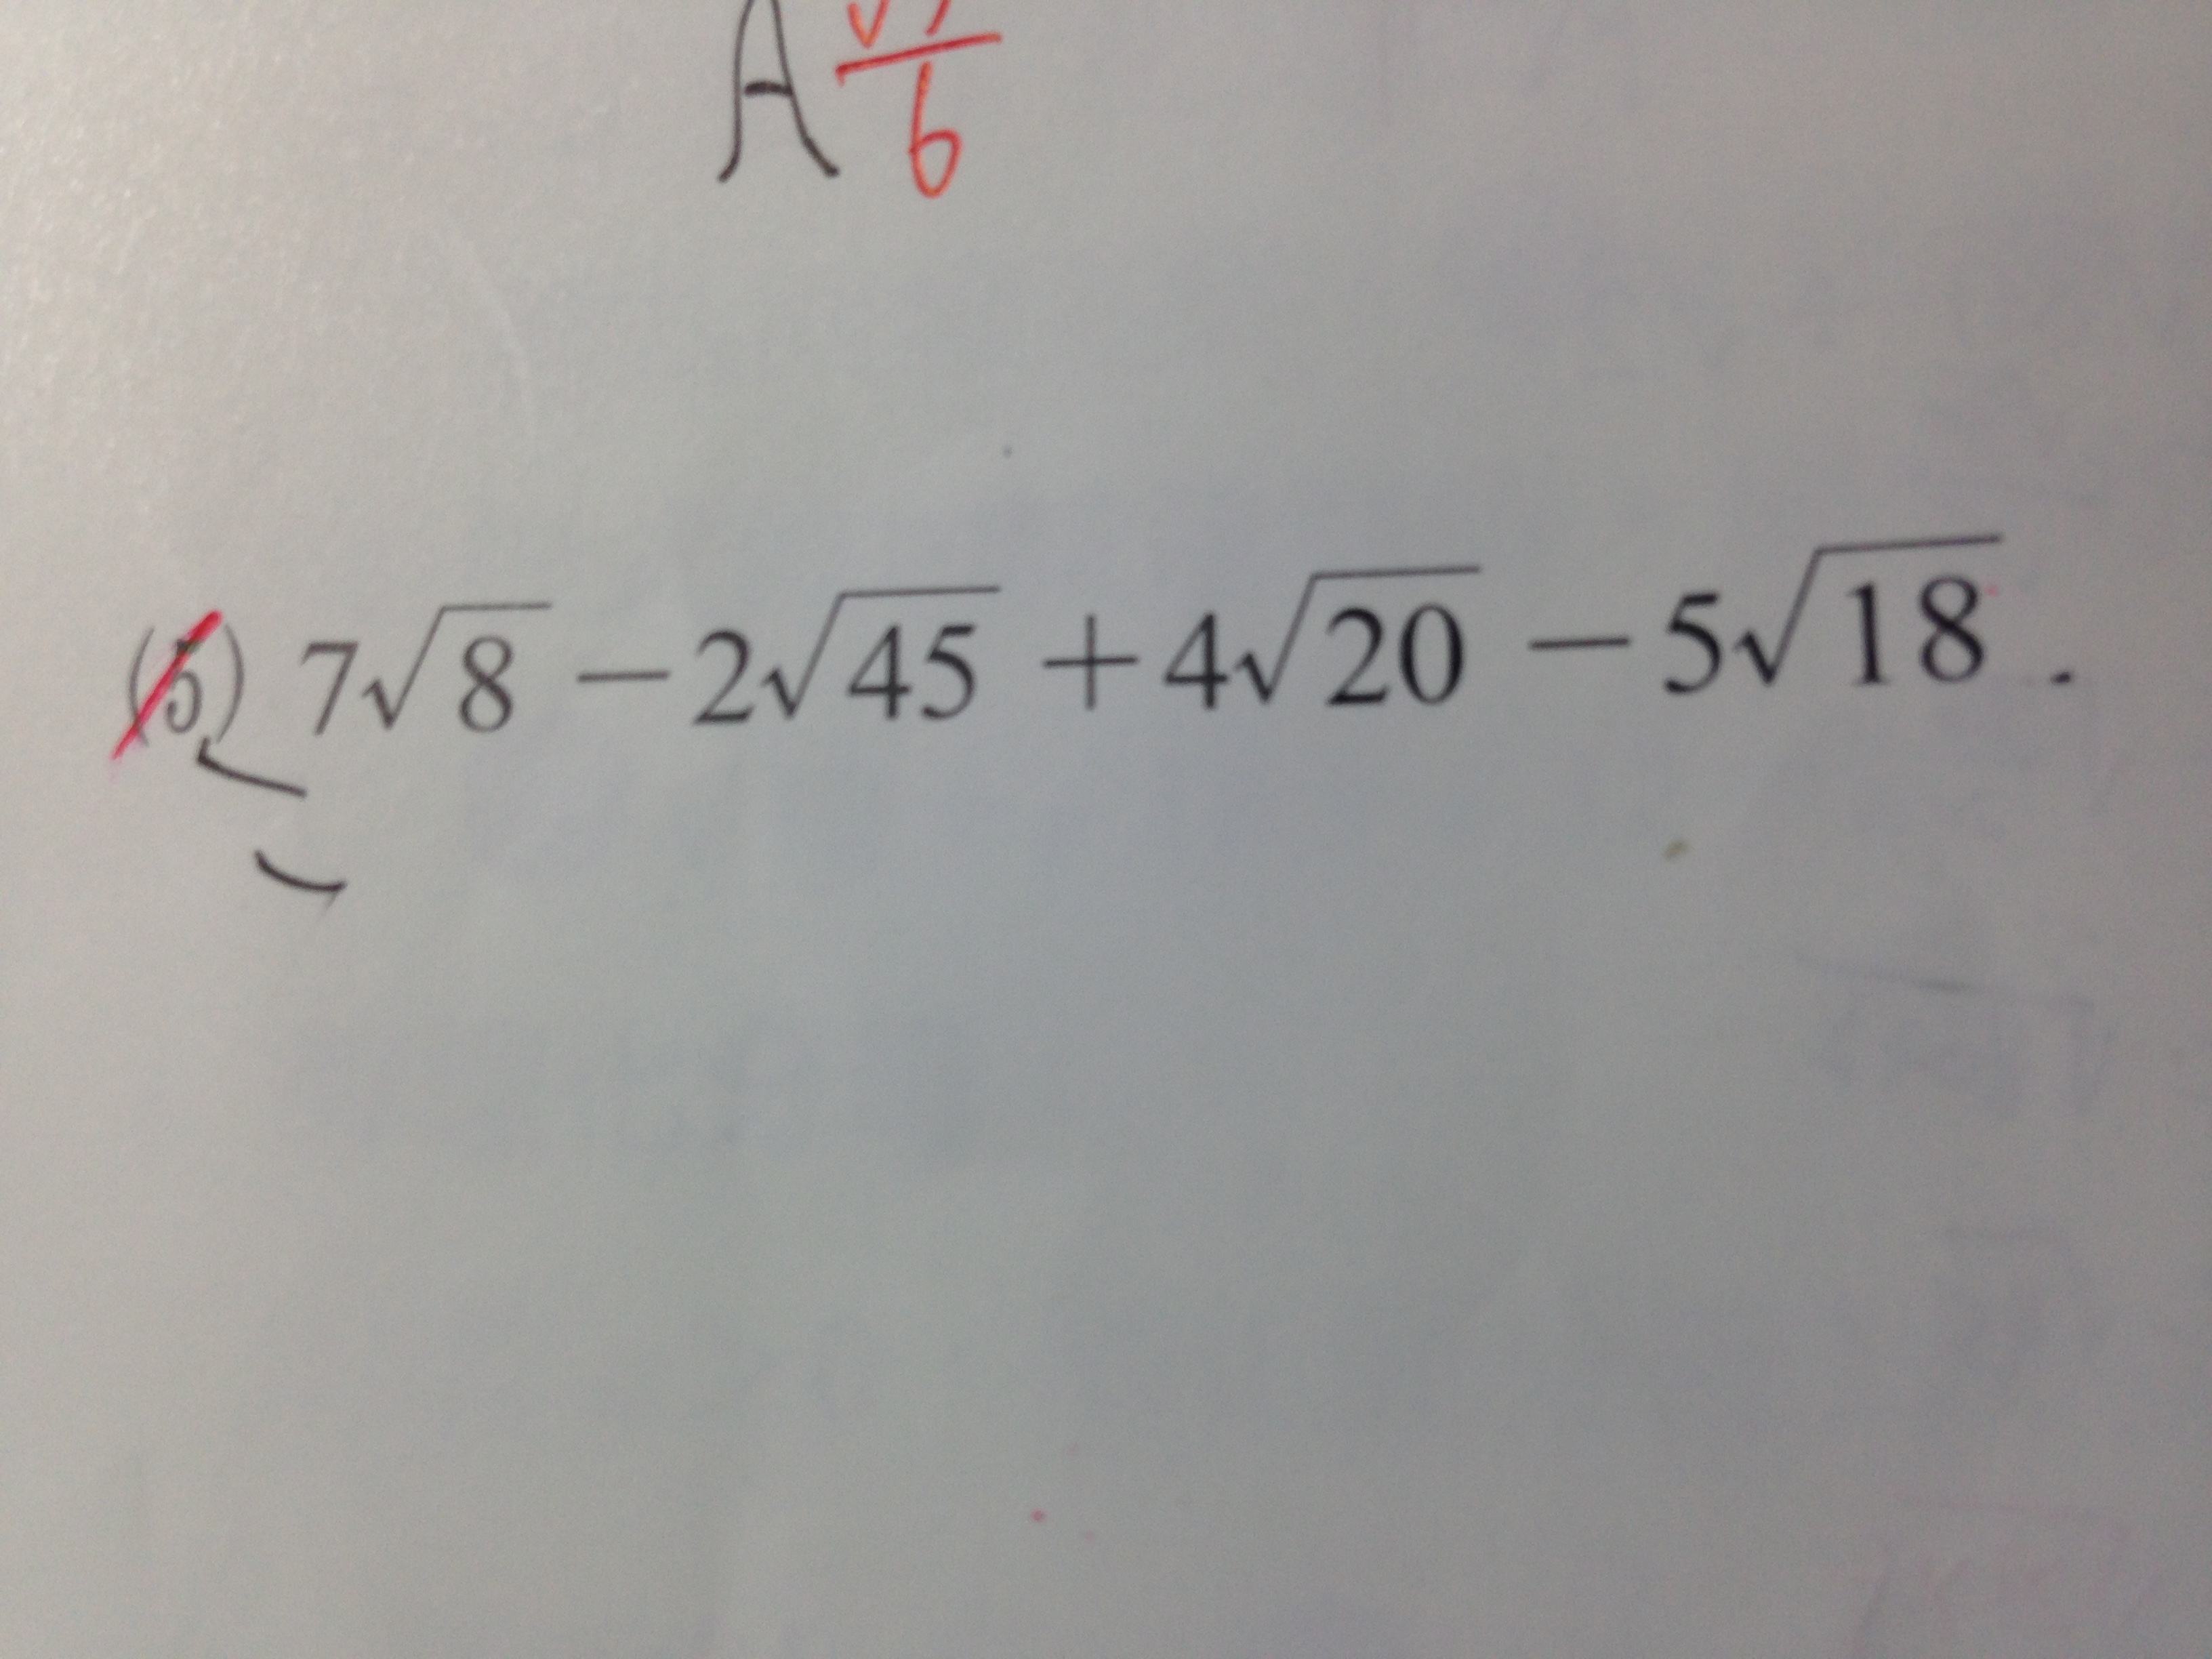 A 6
(5) 7√8 − 2√45 + 4√20 − 5√18 .